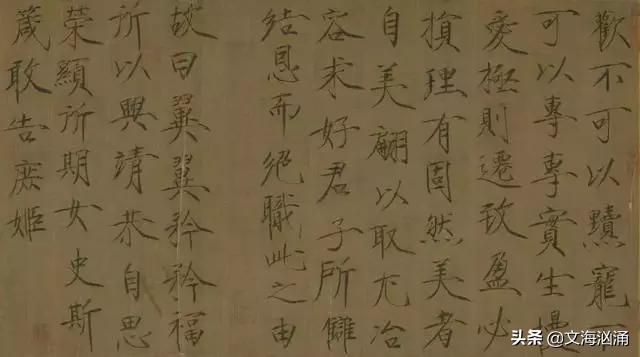 歡不可以黷寵
可以專專實生慢
愛極則遷致盈必
損理有固然美者
自美翩以取尤冶
容求好君子所讎
結恩而絕職此之由
故曰翼翼矜矜福
所以興靖恭自思
榮顯所期女史斯
箴敢告庶姬
头条 @文海汹涌